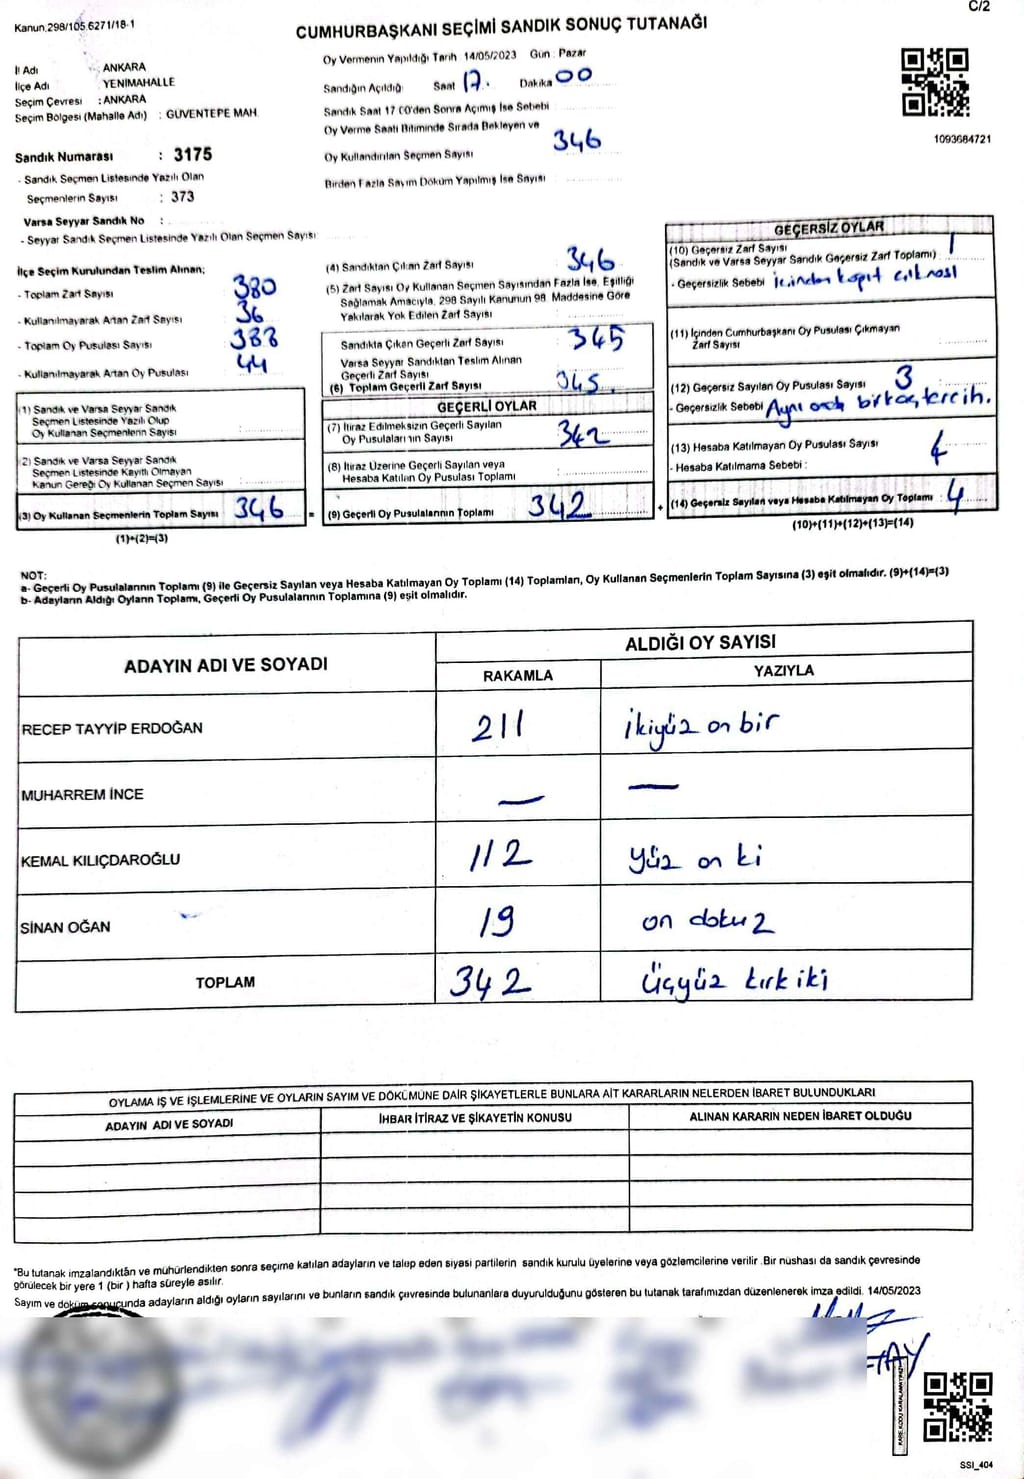 Kanun,298/105,6271/18-1
C/2
CUMHURBAŞKANI SEÇİMİ SANDIK SONUÇ TUTANAĞI
İl Adı : ANKARA
İlçe Adı : YENİMAHALLE
Seçim Çevresi : ANKARA
Seçim Bölgesi (Mahalle Adı) : GÜVENTEPE MAH.
Sandık Numarası : 3175
- Sandık Seçmen Listesinde Yazılı Olan
Seçmenlerin Sayısı : 373
Varsa Seyyar Sandık No :
- Seyyar Sandık Seçmen Listesinde Yazılı Olan Seçmen Sayısı:
Oy Vermenin Yapıldığı Tarih 14/05/2023 Gün : Pazar
Sandığın Açıldığı Saat 17. Dakika 00
Sandık Saat 17 00'den Sonra Açımış İse Sebebi
Oy Verme Saati Bitiminde Sırada Bekleyen ve
Oy Kullandırılan Seçmen Sayısı 346
Birden Fazla Sayım Döküm Yapılmış İse Sayısı
1093684721
İlçe Seçim Kurulundan Teslim Alınan;
- Toplam Zarf Sayısı 380
- Kullanılmayarak Artan Zarf Sayısı 36
- Toplam Oy Pusulası Sayısı 388
- Kullanılmayarak Artan Oy Pusulası 44
(1) Sandık ve Varsa Seyyar Sandık
Seçmen Listesinde Yazılı Olup
Oy Kullanan Seçmenlerin Sayısı :
(2) Sandık ve Varsa Seyyar Sandık
Seçmen Listesinde Kayıtlı Olmayan
Kanun Gereği Oy Kullanan Seçmen Sayısı :
(3) Oy Kullanan Seçmenlerin Toplam Sayısı 346 =
(1)+(2)=(3)
(4) Sandıktan Çıkan Zarf Sayısı 346
(5) Zarf Sayısı Oy Kullanan Seçmen Sayısından Fazla İse, Eşitliği
Sağlamak Amacıyla, 298 Sayılı Kanunun 98 Maddesine Göre
Yakılarak Yok Edilen Zarf Sayısı :
Sandıkta Çıkan Geçerli Zarf Sayısı 345
Varsa Seyyar Sandıktan Teslim Alınan
Geçerli Zarf Sayısı
(6) Toplam Geçerli Zarf Sayısı 345
GEÇERLİ OYLAR
(7) İtiraz Edilmeksizin Geçerli Sayılan
Oy Pusulalarının Sayısı 342
(8) İtiraz Üzerine Geçerli Sayılan veya
Hesaba Katılan Oy Pusulası Toplamı
(9) Geçerli Oy Pusulalarının Toplamı 342 +
GEÇERSİZ OYLAR
(10) Geçersiz Zarf Sayısı 1
(Sandık ve Varsa Seyyar Sandık Geçersiz Zarf Toplamı) :
- Geçersizlik Sebebi İçinden kağıt çıkması
(11) İçinden Cumhurbaşkanı Oy Pusulası Çıkmayan
Zarf Sayısı :
(12) Geçersiz Sayılan Oy Pusulası Sayısı 3
- Geçersizlik Sebebi Aynı anda birkaç tercih.
(13) Hesaba Katılmayan Oy Pusulası Sayısı
- Hesaba Katılmama Sebebi :
(14) Geçersiz Sayılan veya Hesaba Katılmayan Oy Toplamı : 4
(10)+(11)+(12)+(13)=(14)
NOT:
a- Geçerli Oy Pusulalarının Toplamı (9) ile Geçersiz Sayılan veya Hesaba Katılmayan Oy Toplamı (14) Toplamları, Oy Kullanan Seçmenlerin Toplam Sayısına (3) eşit olmalıdır. (9)+(14)=(3)
b- Adayların Aldığı Oyların Toplamı, Geçerli Oy Pusulalarının Toplamına (9) eşit olmalıdır.
ADAYIN ADI VE SOYADI ALDIĞI OY SAYISI
RAKAMLA YAZIYLA
RECEP TAYYİP ERDOĞAN 211 ikiyüz on bir
MUHARREM İNCE — —
KEMAL KILIÇDAROĞLU 112 yüz on ki
SİNAN OĞAN 19 on dokuz
TOPLAM 342 üçyüz kırk iki
OYLAMA İŞ VE İŞLEMLERİNE VE OYLARIN SAYIM VE DÖKÜMÜNE DAİR ŞİKAYETLERLE BUNLARA AİT KARARLARIN NELERDEN İBARET BULUNDUKLARI
ADAYIN ADI VE SOYADI İHBAR İTİRAZ VE ŞİKAYETİN KONUSU ALINAN KARARIN NEDEN İBARET OLDUĞU
*Bu tutanak imzalandıktan ve mühürlendikten sonra seçime katılan adayların ve talep eden siyasi partilerin sandık kurulu üyelerine veya gözlemcilerine verilir .Bir nüshası da sandık çevresinde
görülecek bir yere 1 (bir ) hafta süreyle asılır.
Sayım ve döküm sonucunda adayların aldığı oyların sayılarını ve bunların sandık çevresinde bulunanlara duyurulduğunu gösteren bu tutanak tarafımızdan düzenlenerek imza edildi. 14/05/2023
KARE KODU KARALAMAYINIZ
SSİ_404